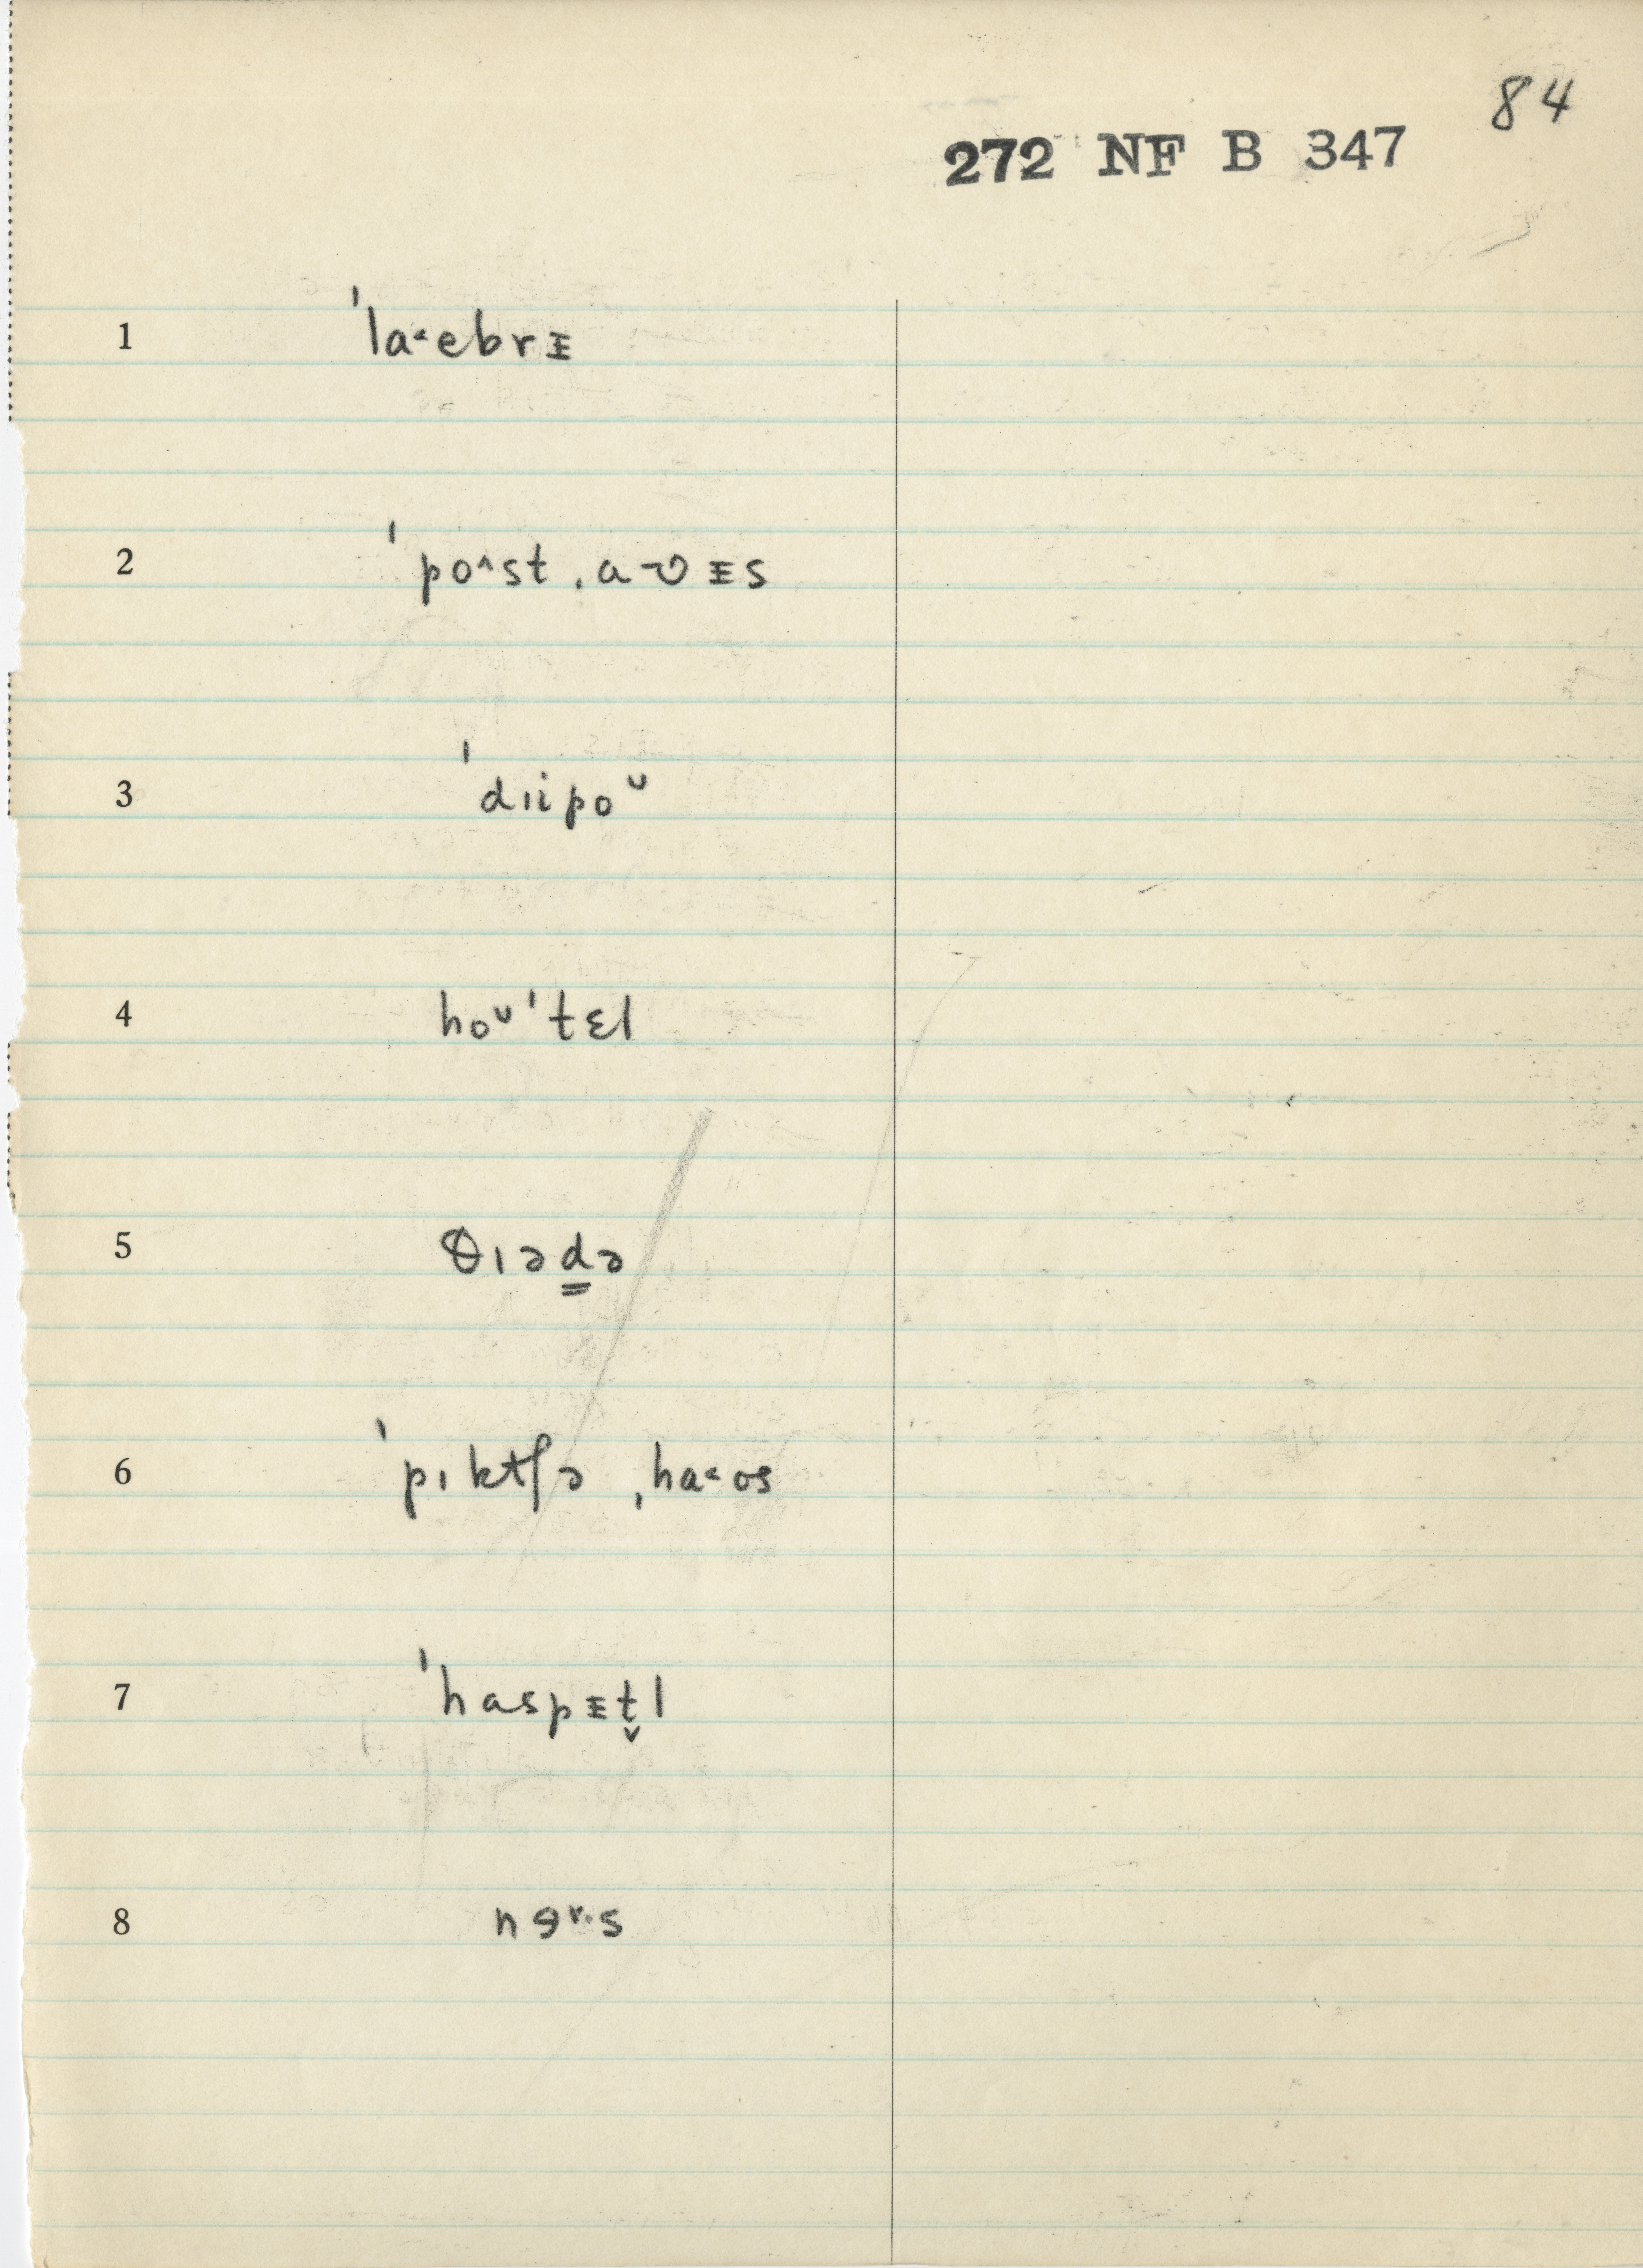 84
272 NF B 347
1 ˈla˂ebrᵻ
2 ˈpo˄st ˌaʊᵻs
3 ˈdɪipoᴗ
4 hoᶸˈtɛl
5 θɪəd̳ə
6 ˈpɪktʃə ˌha˂ʊs
7 ˈhaspᵻt̬l
8 nɘʳ·s